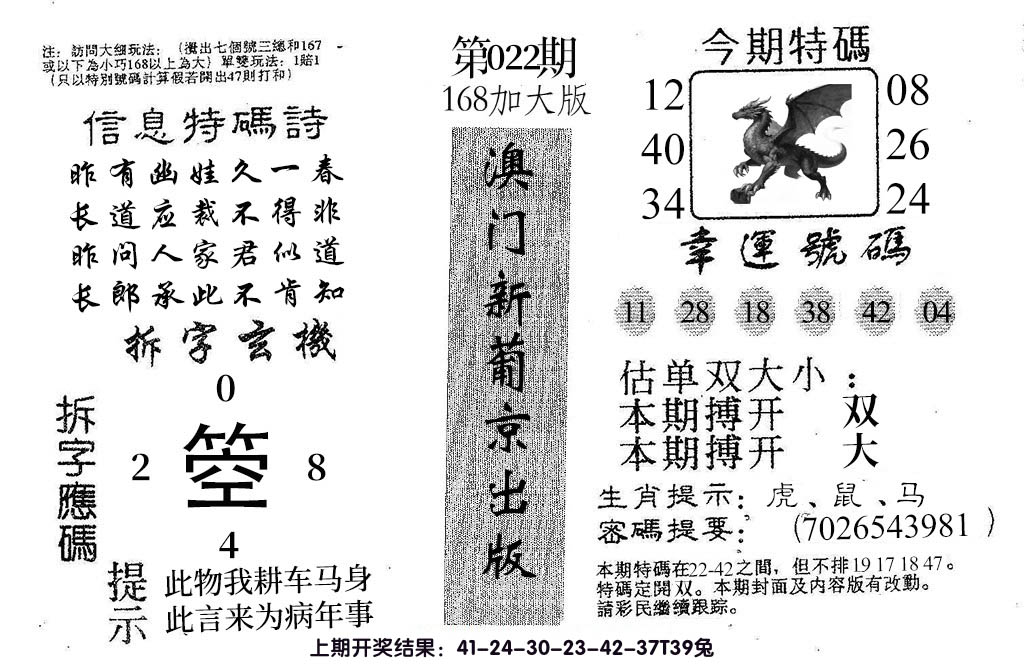 注：訪問大细玩法：（攪出七個號三總和167
或以下為小巧168以上為大）單雙玩法：1賠1
（只以特別號碼計算假若開出47則打和）
信息特碼詩
昨有幽娃久一春
长道应裁不得非
昨问人家君似道
长郎承此不肯知
拆字玄機
拆字應碼
0
2 箜 8
4
提示
此物我耕车马身
此言来为病年事
第022期
168加大版
澳门新葡京出版
今期特碼
12 08
40 26
34 24
幸運號碼
11 28 18 38 42 04
估单双大小：
本期搏开 双
本期搏开 大
生肖提示：虎、鼠、马
密碼提要：（7026543981）
本期特碼在22-42之間，但不排19 17 18 47。
特碼定開双。本期封面及内容版有改動。
請彩民繼續跟踪。
上期开奖结果：41-24-30-23-42-37T39兔